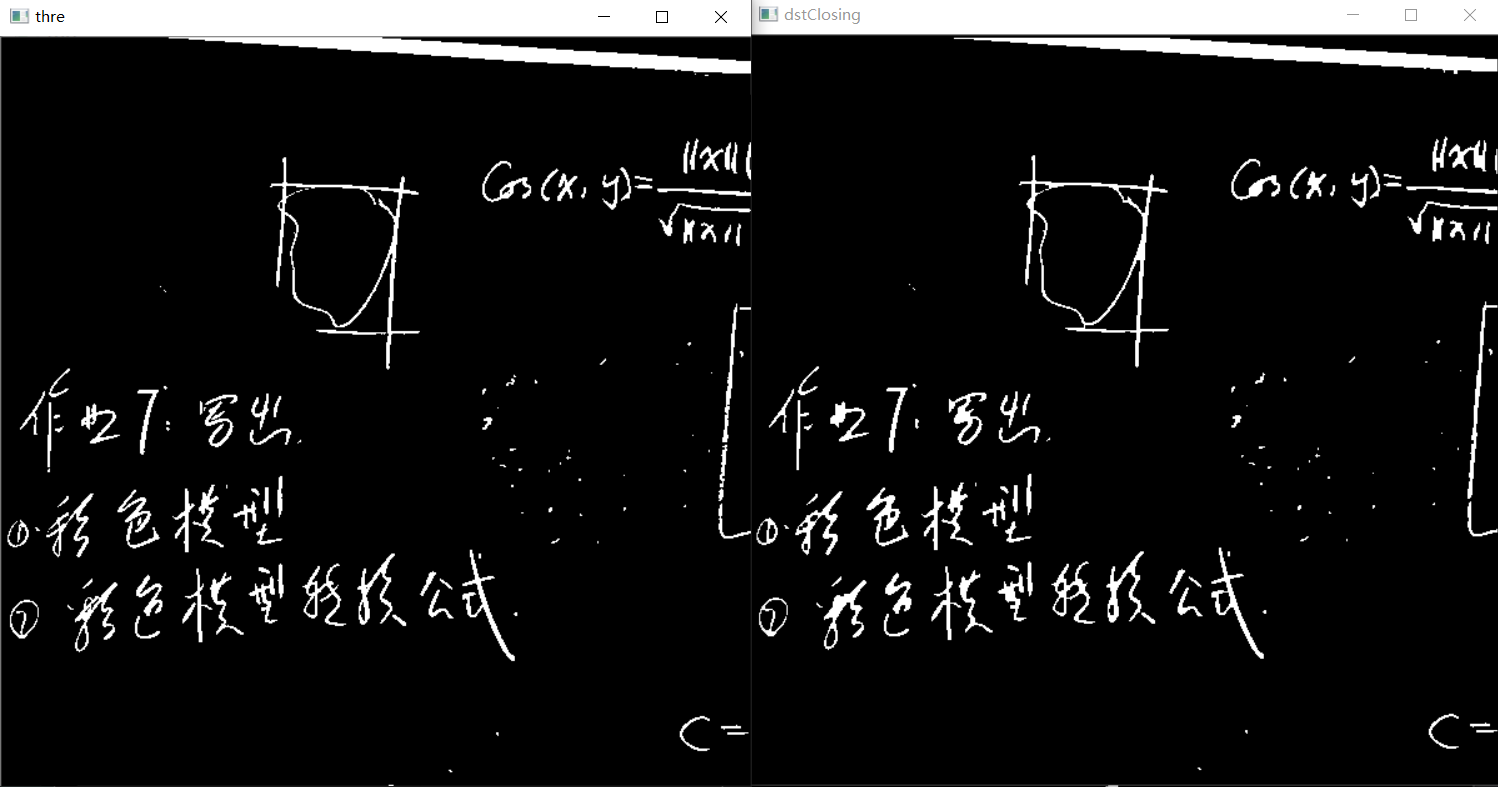 thre
dstClosing
Cos(x, y)=
作业7:写出
①彩色模型
②彩色模型转换公式.
C=
Cos(x, y)=
作业7:写出
①彩色模型
②彩色模型转换公式.
C=